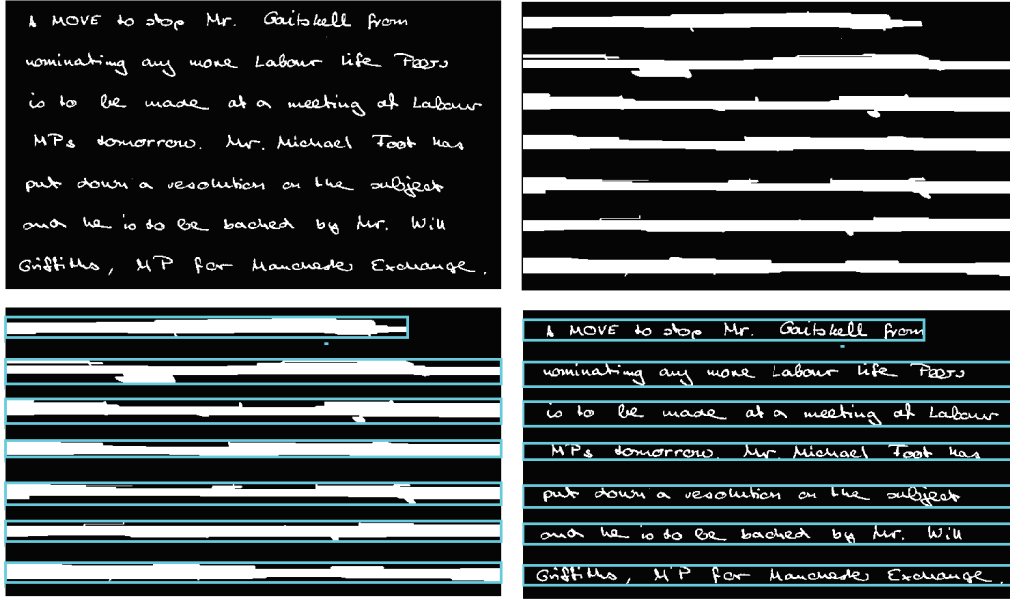 A MOVE to stop Mr. Gaitskell from
nominating any more Labour Life Peers
is to be made at a meeting of Labour
MPs tomorrow. Mr. Michael Foot has
put down a resolution on the subject
and he is to be backed by Mr. Will
Griffiths, MP for Manchester Exchange.
A MOVE to stop Mr. Gaitskell from
nominating any more Labour Life Peers
is to be made at a meeting of Labour
MPs tomorrow. Mr. Michael Foot has
put down a resolution on the subject
and he is to be backed by Mr. Will
Griffiths, MP for Manchester Exchange.